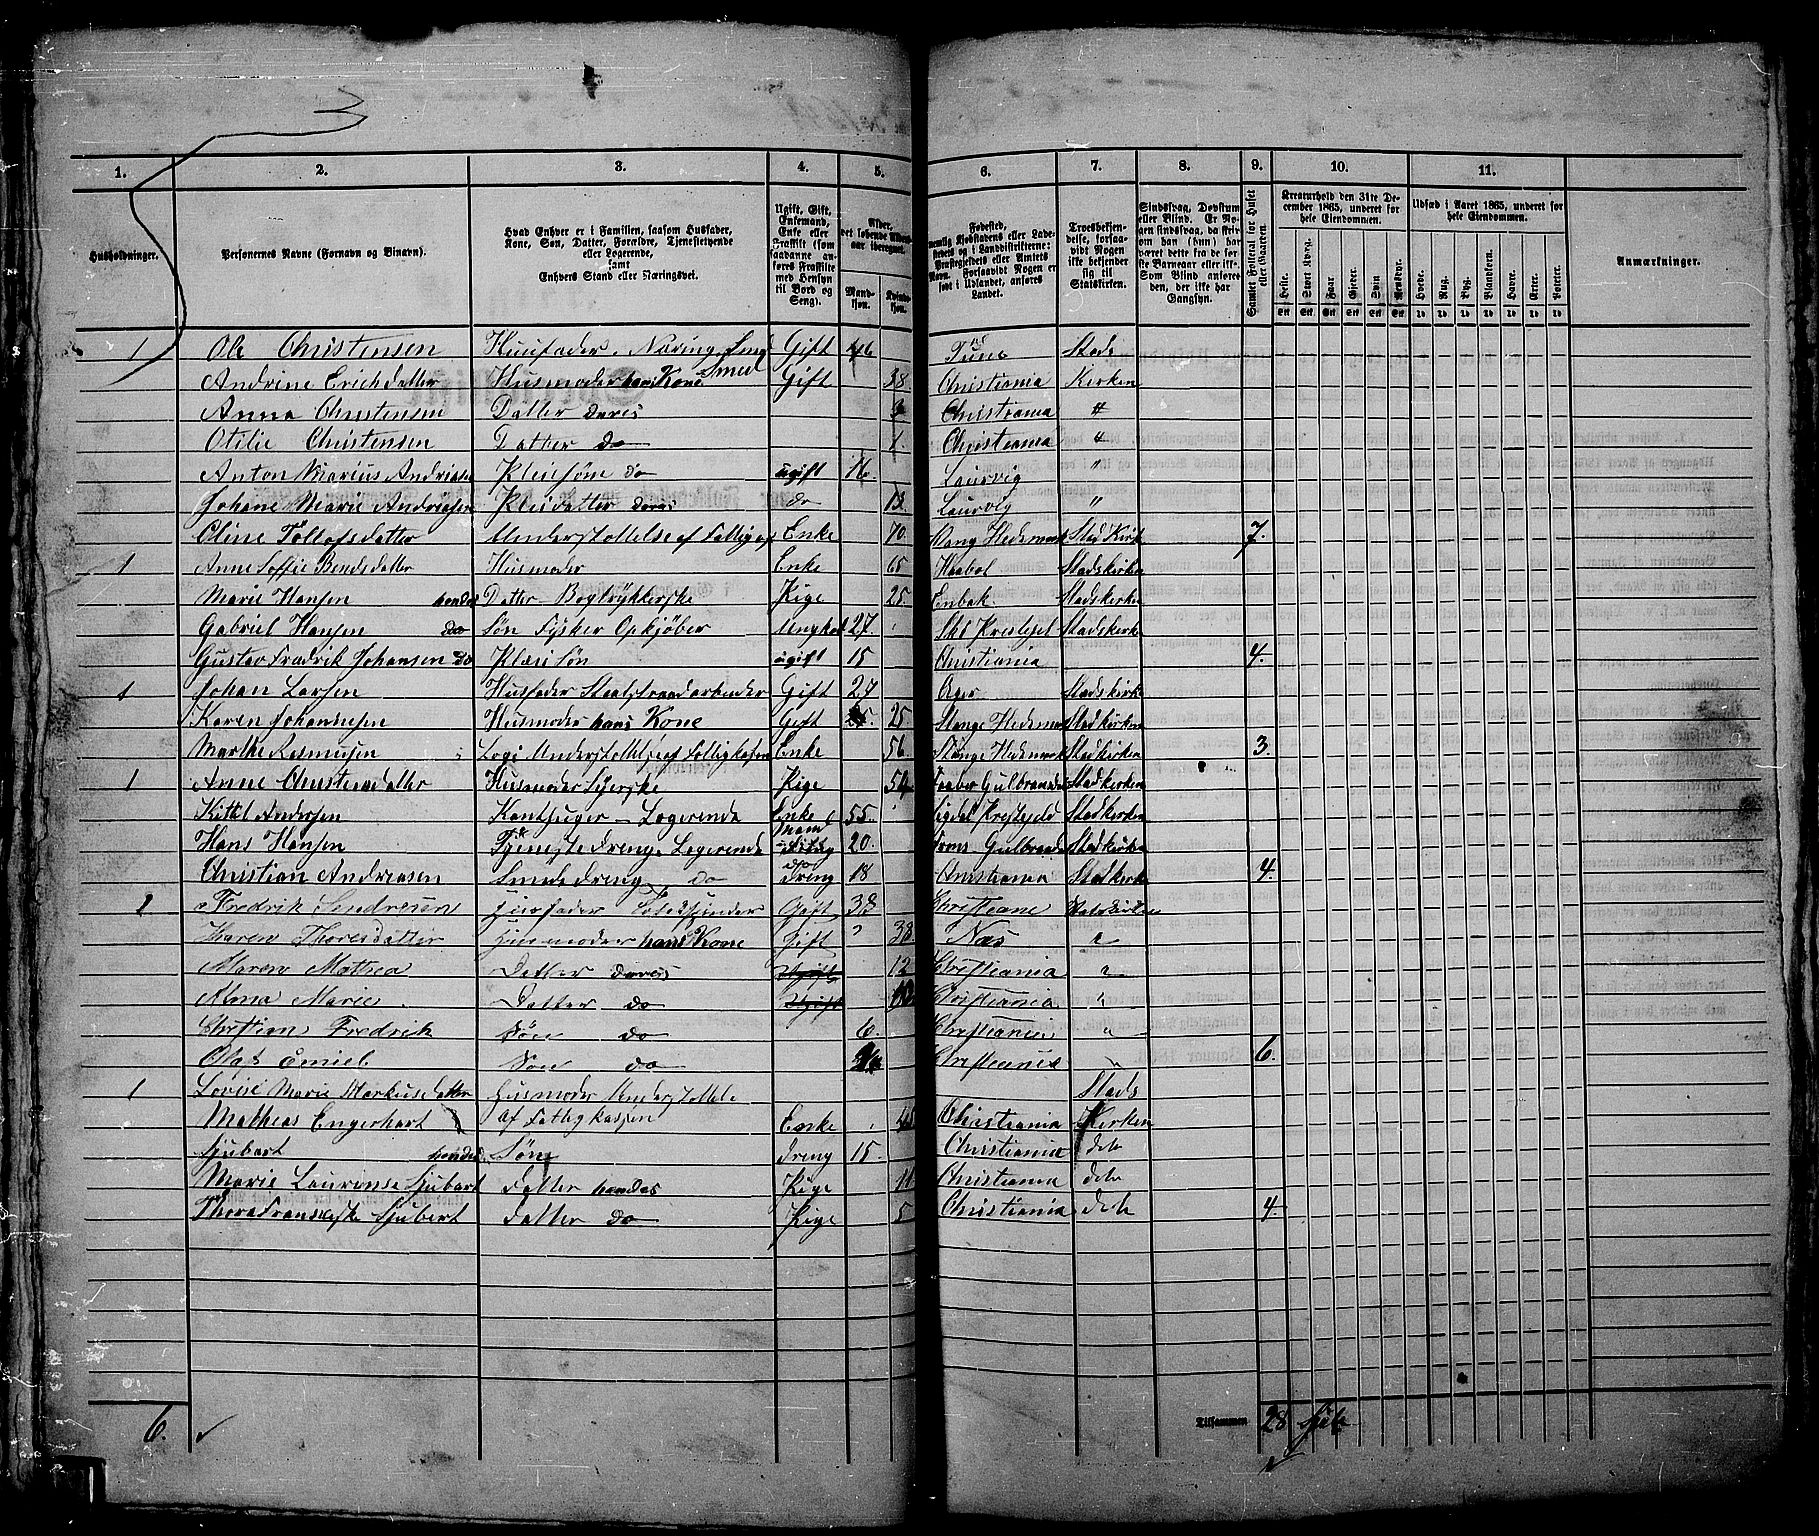 1. 2. 3. 4. 5. 6. 7. 8. 9. 10. 11.
Husholdninger.
Personernes Navne (Fornavn og Binavn).
Hvad Enhver er i Familien, saasom Husfader,
Kone, Søn, Datter, Forældre, Tjenestetyende
eller Logerende,
samt
Enhvers Stand eller Næringsvei.
Ugift, Gift,
Enkemand,
Enke eller
Fraskilt (som
saadanne an-
føres Fraskilte
med Hensyn
til Bord og
Seng).
Alder,
det løbende Alders-
aar iberegnet.
Mand-
kjøn.
Kvinde-
kjøn.
Fødested,
nemlig Kjøbstadens eller Lade-
stedets og i Landdistrikterne:
Præstegjeldets eller Amtets
Navn. Forsaavidt Nogen er
født i Udlandet, anføres
Landet.
Troesbekjen-
delse, forsaa-
vidt Nogen
ikke bekjender
sig til
Statskirken.
Sindssvag, Døvstum
eller Blind. Er No-
gen sindssvag, da skri-
ves han (hun) har
været dette fra de før-
ste Barneaar eller ikke.
Som Blind anføre-
s den, der ikke har
Gangsyn.
Samlet Folketal for Huset eller Gaarden.
Kreaturhold den 31te De-
cember 1865, underet for
hele Eiendommen.
Heste. Stort Kvæg. Faar. Gjeder. Svin. Rensdyr.
Udsæd i Aaret 1865, underet for
hele Eiendommen.
Hvede. Rug. Byg. Blankorn. Havre. Erter. Poteter.
Anmærkninger.
1 Ole Christensen Huusfader, Næring Smed Gift 46 Tune Stads
Andrine Erichdatter Husmoder hans Kone Gift 38 Christiania Kirken
Anna Christensen Datter deres 3 Christiania "
Otilie Christensen Datter do 1 Christiania "
Anton Marius Andriasen Pleisøn do ugift 16. Laurvig "
Johane Marie Andriasen Pleidatter deres do 13 Laurvig "
Oline Tollofsdatter Understøttelse af Fattig Enke 70. Vang Hedemark Stad Kirk 7.
1 Anne Soffie Bendsdatter Husmoder Enke 65 Haabøl Stadskirken
Marie Hansen hendes Datter Bogtrykkerske Pige 25. Enbak. Stadskirken
Gabriel Hansen do Søn Fisker Opkjøber Ungkarl 27. Stadskirke
Gustav Fredrik Johansen do Plæi Søn ugift 15 Christiania 4.
1 Johan Larsen Husfader Gift 27 Ager Stadskirke
Karen Johannesen Husmoder hans Kone Gift 25 Stange Hedemark Stadkirken
Marthe Rasmusen Logi Understøttelse af Fattigkassen Enke 56. Stange Hedemark Stadkirken 3.
1 Anne Christensdatter Husmoder Syerske Pige 54 Faaber Gulbrandsd Stadkirken
Kittel Andersen Logerende Enke Mand 55. Sigdal Prestgjeld Stadkirken
Hans Hansen Tjenestedreng Logerende 20. Frons Gulbrands Stadkirken
Christian Andreasen Smededreng do Dreng 18 Christiania Stadkirke 4.
1 Fredrik Husfader Gift 38 Christiane Statskirken
Karen Thoresdatter Husmoder hans Kone Gift 38 Næs "
Maren Mathea Datter deres Ugift 12 Christiania "
Alma Marie Datter do Ugift Christiania "
Christian Fredrik Søn do 6. Christiania "
Olaf Emiel Søn do Christiania " 6.
1 Lovise Marie Markusdatter Husmoder Understøttele Stads
Mathias Engerhart af Fattigkassen Enke Christiania Kirken
Sjubart hendes Søn Dreng 15 Christiania dete
Marie Laurense Sjubart Datter hendes Pige 11 Christiania dete
Thora Franseske Sjubert Datter do Pige 5 Christiania dete 4.
6. Tilsammen 28